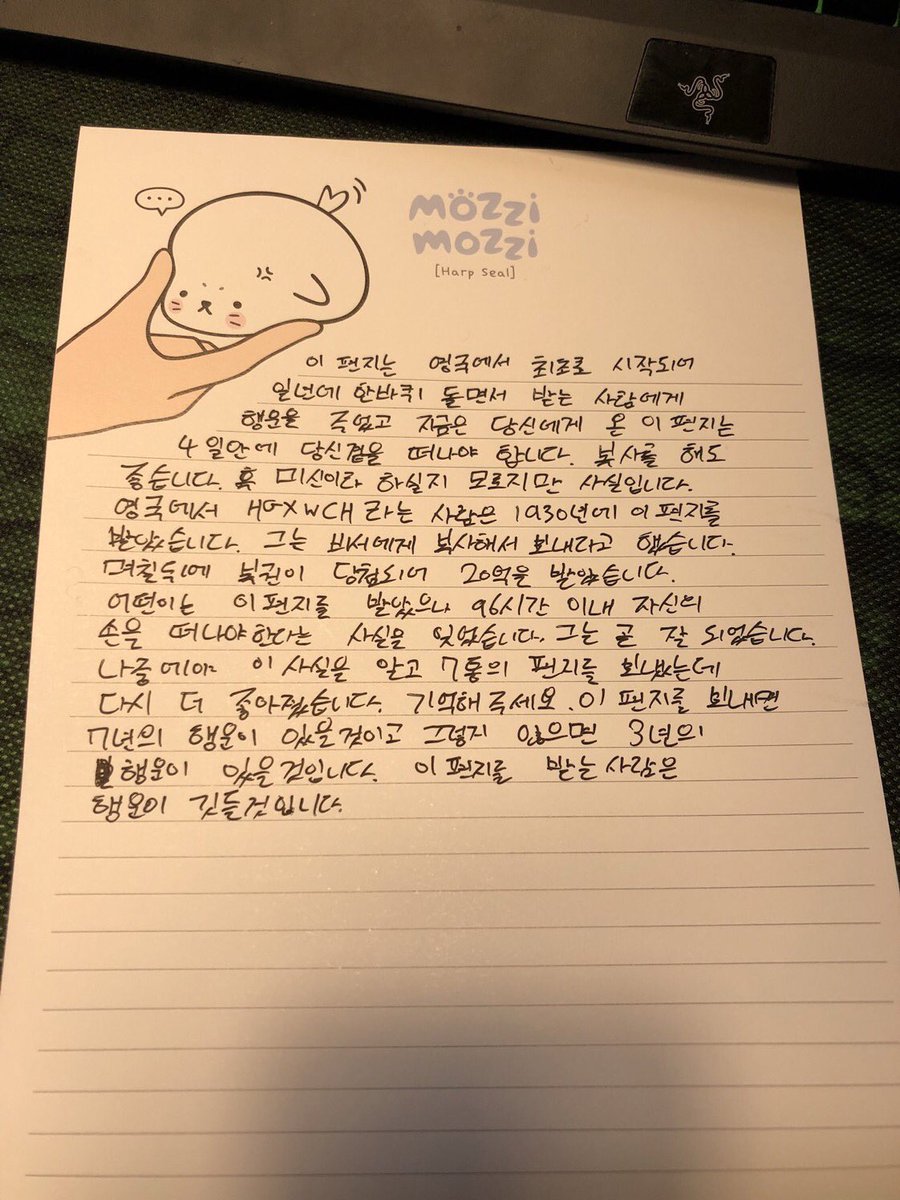 MÖZZi
MOZZi
[Harp Seal]
이 편지는 영국에서 최초로 시작되어
일년에 한바퀴 돌면서 받는 사람에게
행운을 주었고 지금은 당신에게 온 이 편지는
4일안에 당신곁을 떠나야 합니다. 복사를 해도
좋습니다. 혹 미신이라 하실지 모르지만 사실입니다.
영국에서 HGXWCH라는 사람은 1930년에 이 편지를
받았습니다. 그는 비서에게 복사해서 보내라고 했습니다.
며칠뒤에 복권이 당첨되어 20억을 받았습니다.
어떤이는 이 편지를 받았으나 96시간 이내 자신의
손을 떠나야 한다는 사실을 잊었습니다. 그는 곧 잘 되었습니다.
나중에야 이 사실을 알고 7통의 편지를 보냈는데
다시 더 좋아졌습니다. 기억해주세요. 이 편지를 보내면
7년의 행운이 있을것이고 그렇지 않으면 3년의
행운이 있을것입니다. 이 편지를 받는 사람은
행운이 깃들것입니다.